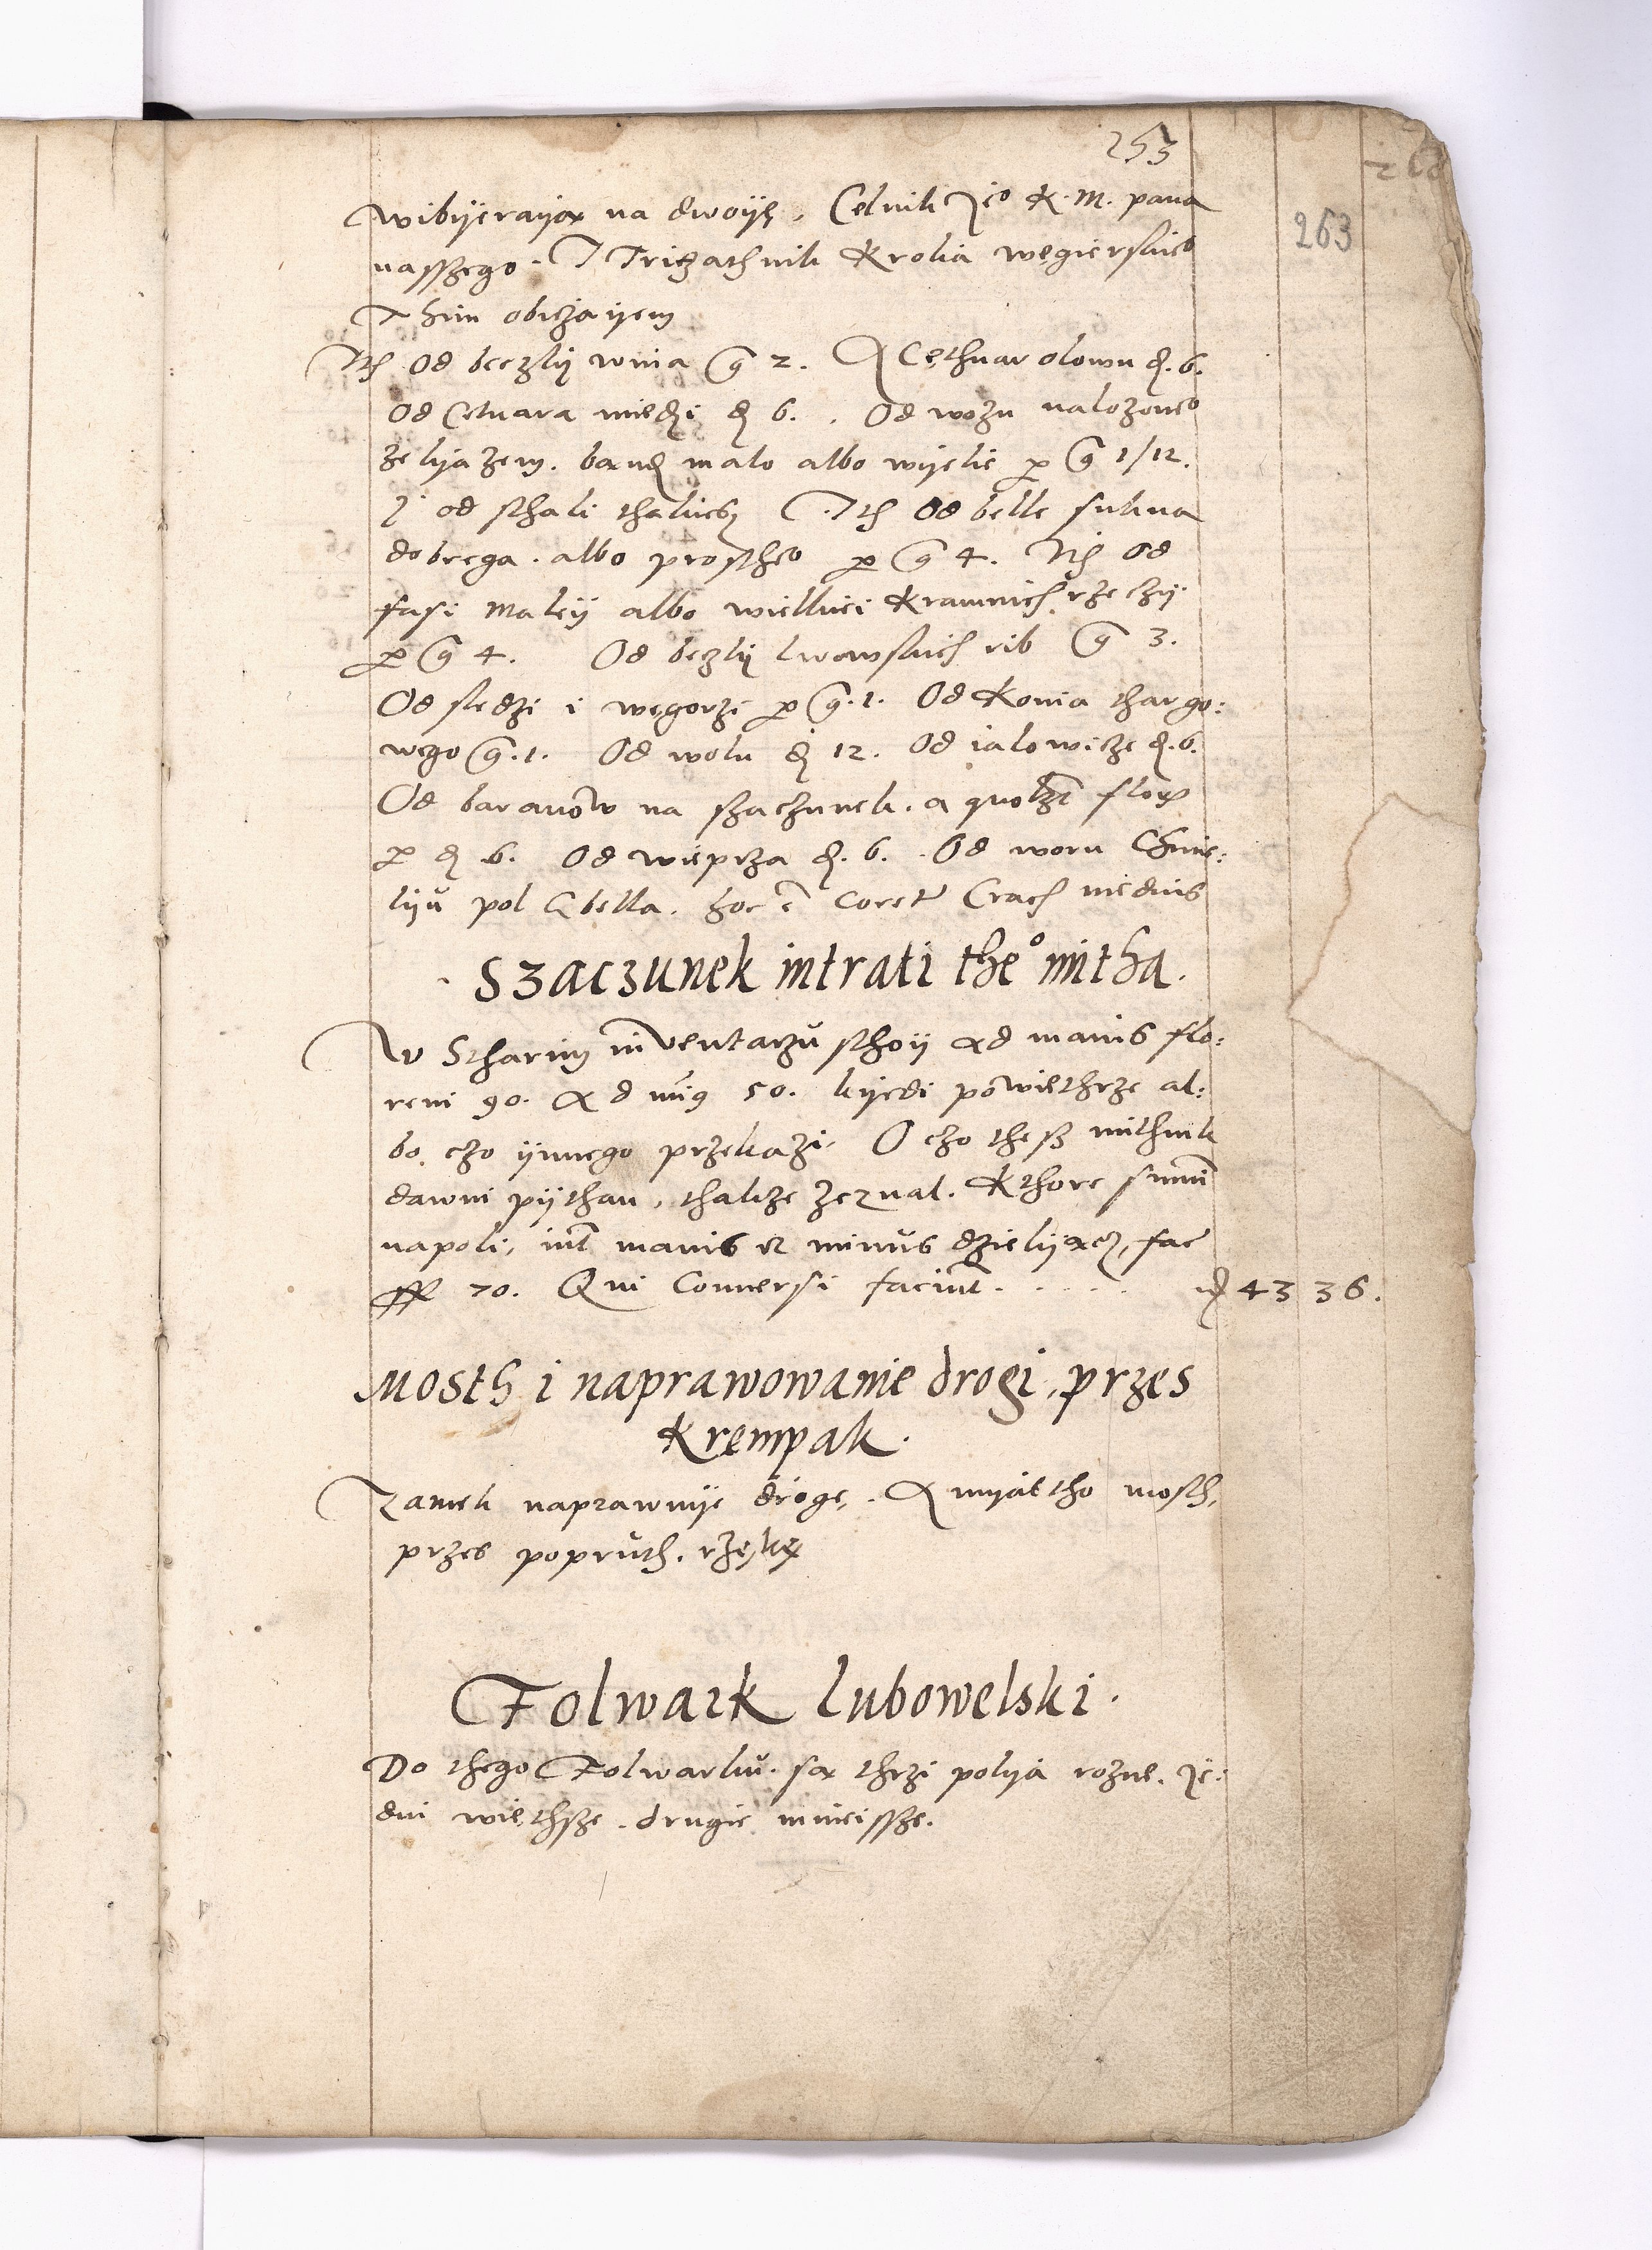 253
263
wibijerayąx na dwoiję, Celnik Jeo K. M. pana
nasszego. I Trizathnik Krolia węgierskieo
Thim obiczayem
Ith Od beczky wina g 2. A Cethnar olowu d. 6.
Od Cetnara miedzi d 6. Od wozu nalozoneo
zelyazem. band malo albo wijelie p g 1/12.
J od sthali thakiesz Ith Od belle sukna
dobrega. albo prostheo p g 4. Ith Od
fasi maleij albo wielkiei kramnich rzeczij
p g 4. Od beczky lwowskich rib g 3.
Od sledzi i węgorzi p g. 1. Od Konia thargo:
wego g. 1. Od wolu d 12. Od ialowicze d. 6.
Od baranow na szaczunek. a quolzt flor
p d 6. Od wieprza d. 6. Od woru Chmie:
liju pol Gbella. hoc e coret Crach medius
Szaczunek intrati theo mitha.
W Stharim inventarzu sthoij ad maius flo:
reni 90. Ad min9 50. kijedi powiethrze al:
bo czo ijnnego przekazi. O czo thesz mithnik
dawni pijthan, thakze zeznal. Kthore summi
napoli, int maius et minus dzielijącz, fac
ff 70. Qui Conversi faciunt . . . . . m 43 36.
Mosth i naprawowanie drogi, przes
Krempak.
Zamek naprawuije drogę, A miasttho mosth,
przes popruth. rzękę
Folwark lubowelski.
Do thego Folwarku. są thrzi polya rozne. Je:
dni wiethsze. drugie mnieissze.